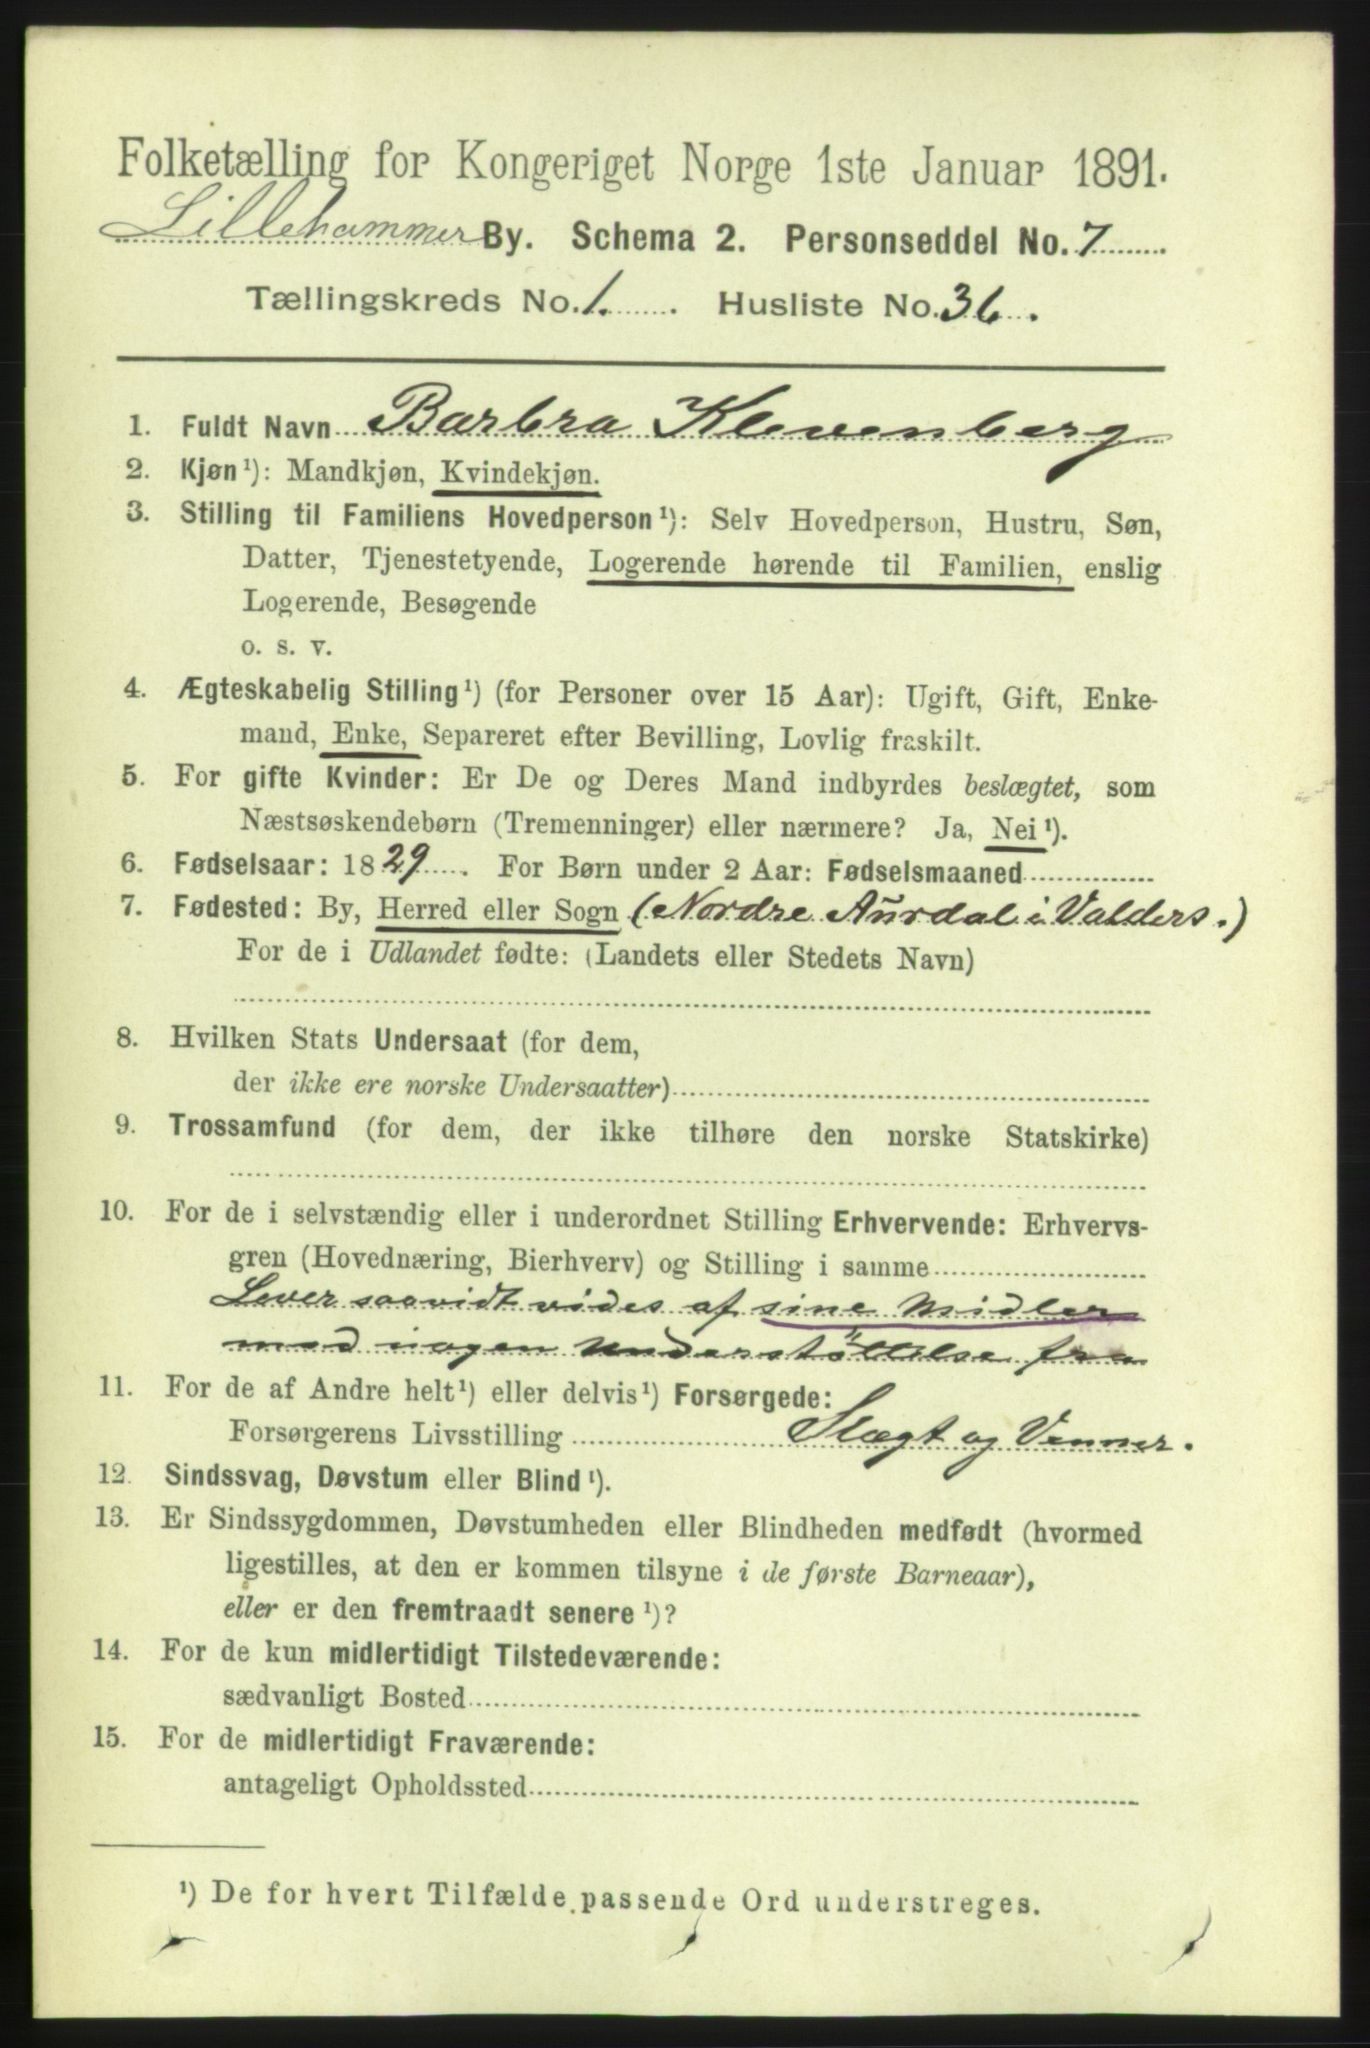 Folketælling for Kongeriget Norge 1ste Januar 1891.
Lillehammer By. Schema 2. Personseddel No. 7
Tællingskreds No. 1. Husliste No. 36.
1. Fuldt Navn Barbra Klevenberg
2. Kjøn¹): Mandkjøn, Kvindekjøn.
3. Stilling til Familiens Hovedperson¹): Selv Hovedperson, Hustru, Søn,
Datter, Tjenestetyende, Logerende hørende til Familien, enslig
Logerende, Besøgende
o. s. v.
4. Ægteskabelig Stilling¹) (for Personer over 15 Aar): Ugift, Gift, Enke-
mand, Enke, Separeret efter Bevilling, Lovlig fraskilt.
5. For gifte Kvinder: Er De og Deres Mand indbyrdes beslægtet, som
Næstsøskendebørn (Tremenninger) eller nærmere? Ja, Nei¹).
6. Fødselsaar: 1829. For Børn under 2 Aar: Fødselsmaaned
7. Fødested: By, Herred eller Sogn (Nordre Aurdal i Valders.)
For de i Udlandet fødte: (Landets eller Stedets Navn)
8. Hvilken Stats Undersaat (for dem,
der ikke ere norske Undersaatter)
9. Trossamfund (for dem, der ikke tilhøre den norske Statskirke)
10. For de i selvstændig eller i underordnet Stilling Erhvervende: Erhvervs-
gren (Hovednæring, Bierhverv) og Stilling i samme
Lever saavidt vides af sine Midler
med nogen Understöttelse fra
11. For de af Andre helt¹) eller delvis¹) Forsørgede:
Forsørgerens Livsstilling Slægt og Venner.
12. Sindssvag, Døvstum eller Blind¹).
13. Er Sindssygdommen, Døvstumheden eller Blindheden medfødt (hvormed
ligestilles, at den er kommen tilsyne i de første Barneaar),
eller er den fremtraadt senere¹)?
14. For de kun midlertidigt Tilstedeværende:
sædvanligt Bosted
15. For de midlertidigt Fraværende:
antageligt Opholdssted
¹) De for hvert Tilfælde passende Ord understreges.